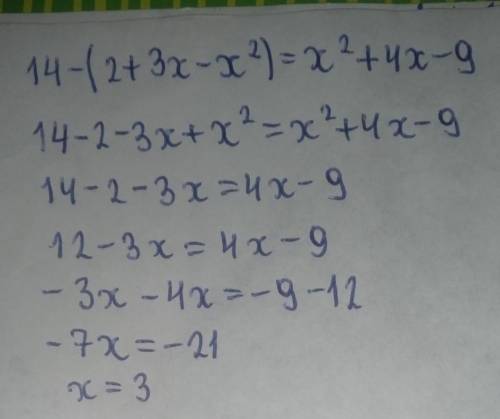 14-(2+3x-x²)=x²+4x-9
14-2-3x+x²=x²+4x-9
14-2-3x=4x-9
12-3x=4x-9
-3x-4x=-9-12
-7x=-21
x=3